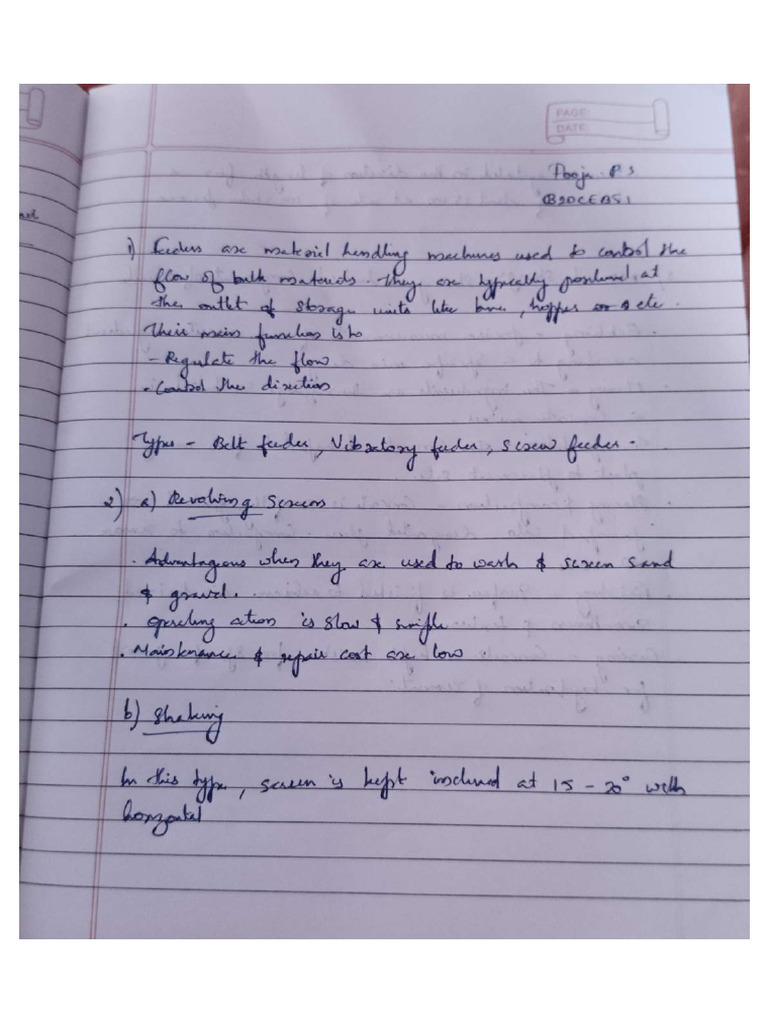 PAGE:
DATE:
Pooja P S
B20CEB51
1) Feeders are material handling machines used to control the
flow of bulk materials. They are typically positioned at
the outlet of storage units like bins, hopper or s etc.
Their main function is to
- Regulate the flow
- Control the direction
Types - Belt feeder, Vibratory feeder, screw feeder.
2) a) Revolving screens
. Advantageous when they are used to wash & screen sand
& gravel.
. Operating action is slow & simple
. Maintenance & repair cost are low.
b) Shaking
In this type, screen is kept inclined at 15 - 20° with
horizontal